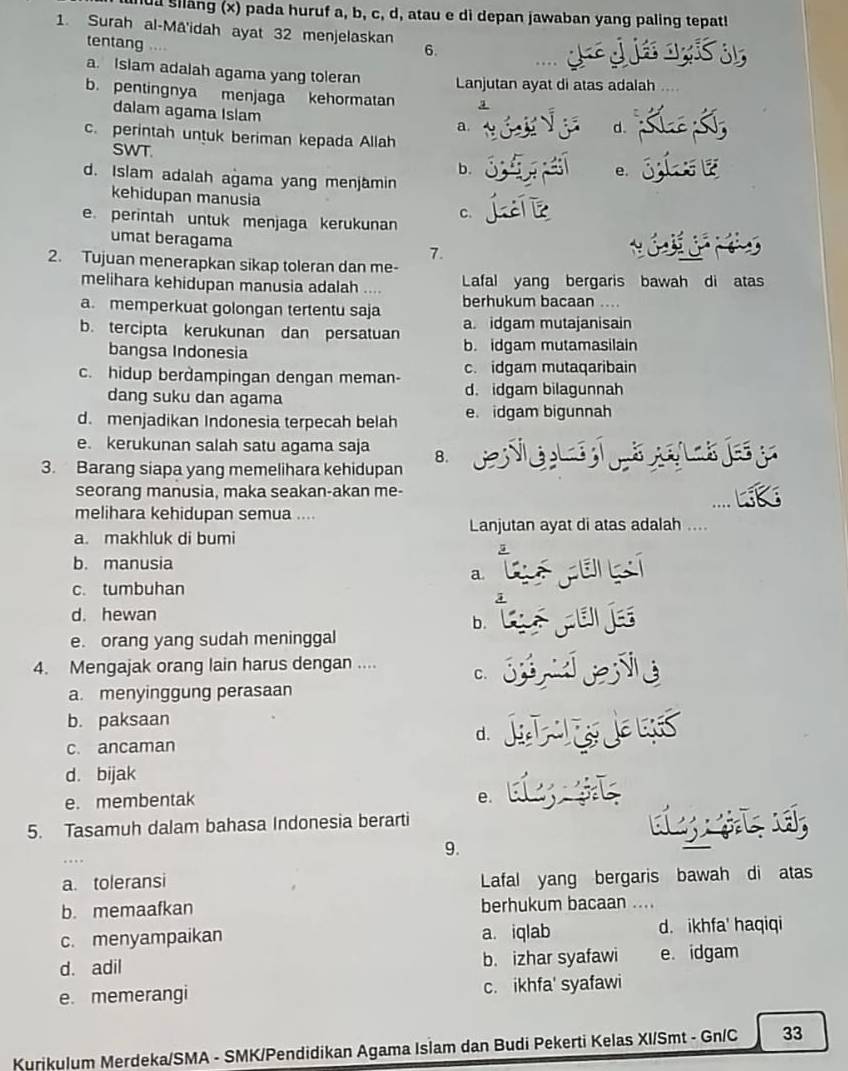 silang (x) pada huruf a, b, c, d, atau e di depan jawaban yang paling tepat!
1. Surah al-Mā'idah ayat 32 menjelaskan
tentang ....
a. Islam adalah agama yang toleran
b. pentingnya menjaga kehormatan
dalam agama Islam
c. perintah untuk beriman kepada Allah
SWT.
d. Islam adalah agama yang menjamin
kehidupan manusia
e. perintah untuk menjaga kerukunan
umat beragama
2. Tujuan menerapkan sikap toleran dan me-
melihara kehidupan manusia adalah ....
a. memperkuat golongan tertentu saja
b. tercipta kerukunan dan persatuan
bangsa Indonesia
c. hidup berdampingan dengan meman-
dang suku dan agama
d. menjadikan Indonesia terpecah belah
e. kerukunan salah satu agama saja
3. Barang siapa yang memelihara kehidupan
seorang manusia, maka seakan-akan me-
melihara kehidupan semua ....
a. makhluk di bumi
b. manusia
c. tumbuhan
d. hewan
e. orang yang sudah meninggal
4. Mengajak orang lain harus dengan ....
a. menyinggung perasaan
b. paksaan
c. ancaman
d. bijak
e. membentak
5. Tasamuh dalam bahasa Indonesia berarti
....
a. toleransi
b. memaafkan
c. menyampaikan
d. adil
e. memerangi
6. وَاِنْ كَذَّبُوْكَ فَقُلْ لِّيْ عَمَلِيْ ....
Lanjutan ayat di atas adalah ....
a. مَّنْ لَّا يُؤْمِنُ بِهٖۗ
d. وَلَكُمْ عَمَلُكُمْۚ
b. اَنْتُمْ بَرِيْۤـُٔوْنَ
e. مِّمَّا تَعْمَلُوْنَ
c. مِمَّآ اَعْمَلُ
7. وَمِنْهُمْ مَّنْ يُّؤْمِنُ بِهٖ
Lafal yang bergaris bawah di atas
berhukum bacaan ....
a. idgam mutajanisain
b. idgam mutamasilain
c. idgam mutaqaribain
d. idgam bilagunnah
e. idgam bigunnah
8. مَنْ قَتَلَ نَفْسًاۢ بِغَيْرِ نَفْسٍ اَوْ فَسَادٍ فِى الْاَرْضِ
فَكَاَنَّمَا ....
Lanjutan ayat di atas adalah ....
a. اَحْيَا النَّاسَ جَمِيْعًاۗ
b. قَتَلَ النَّاسَ جَمِيْعًاۗ
c. فِى الْاَرْضِ لَمُسْرِفُوْنَ
d. كَتَبْنَا عَلٰى بَنِيْٓ اِسْرَاۤءِيْلَ
e. جَاۤءَتْهُمْ رُسُلُنَا
9. وَلَقَدْ جَاۤءَتْهُمْ رُسُلُنَا
Lafal yang bergaris bawah di atas
berhukum bacaan ....
a. iqlab
d. ikhfa' haqiqi
b. izhar syafawi
e. idgam
c. ikhfa' syafawi
Kurikulum Merdeka/SMA - SMK/Pendidikan Agama Islam dan Budi Pekerti Kelas XI/Smt - Gn/C 33